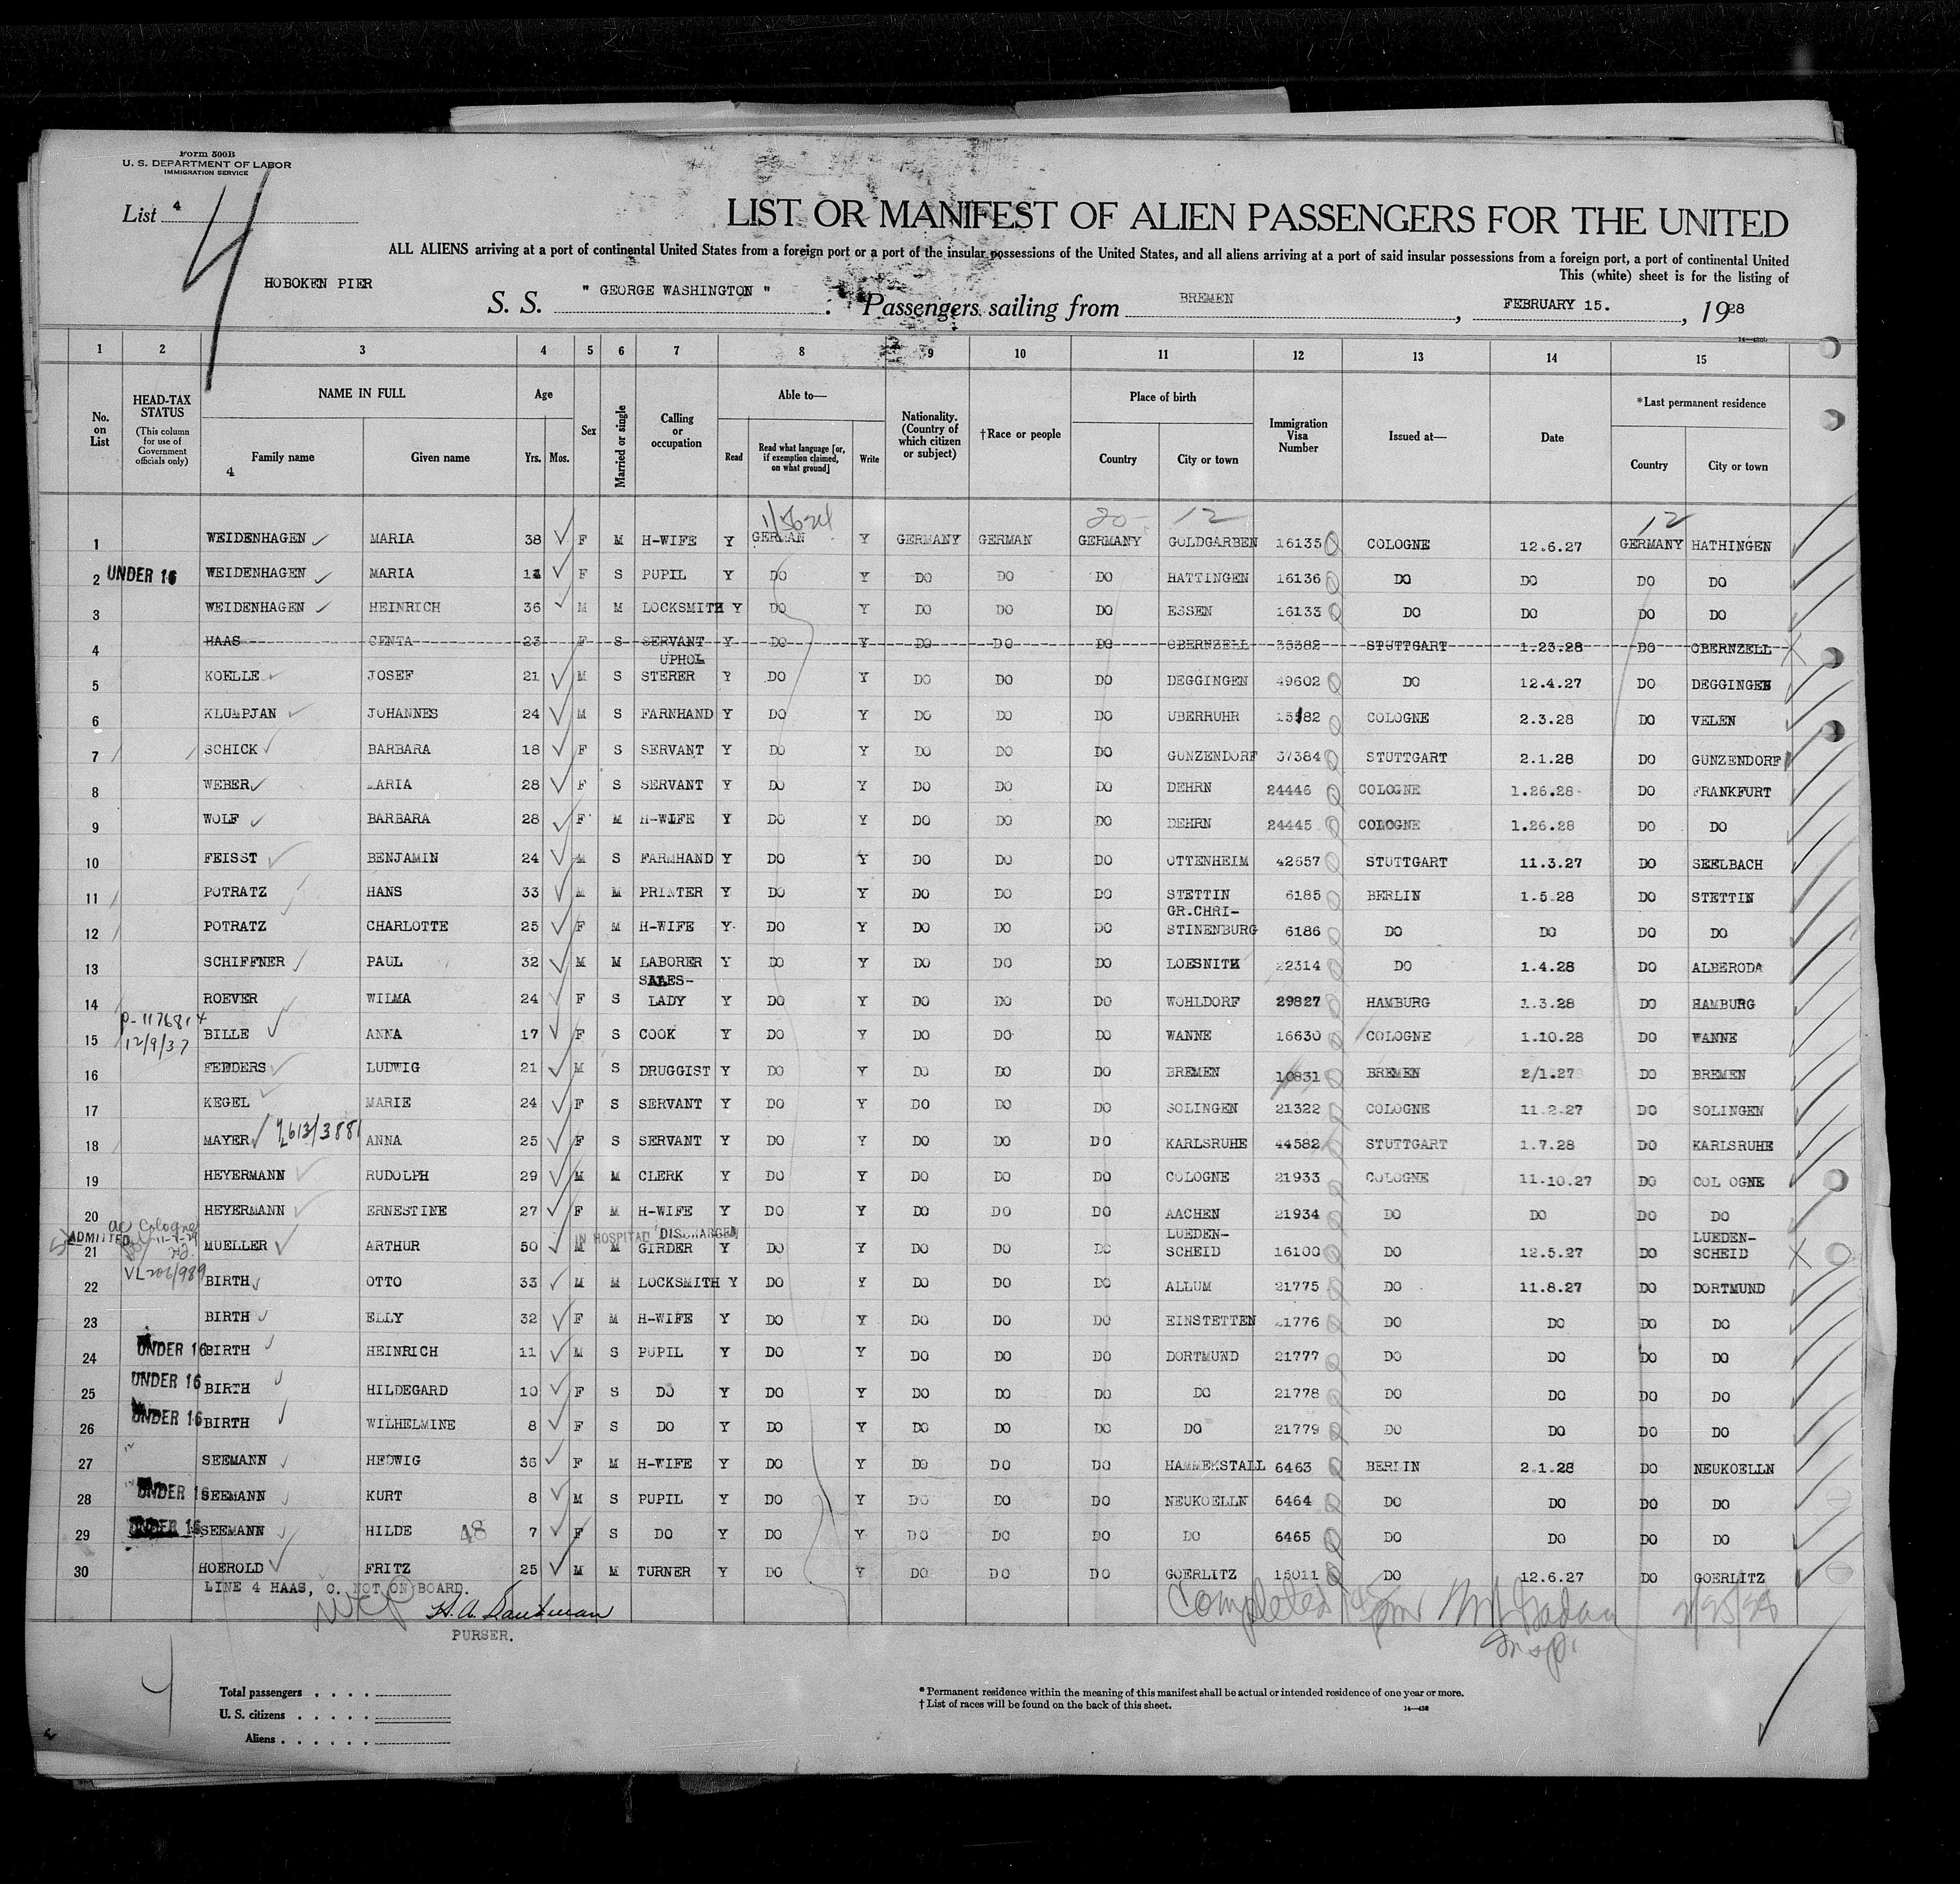 Form 500B
U. S. DEPARTMENT OF LABOR
IMMIGRATION SERVICE
List 4
4
LIST OR MANIFEST OF ALIEN PASSENGERS FOR THE UNITED
ALL ALIENS arriving at a port of continental United States from a foreign port or a port of the insular possessions of the United States, and all aliens arriving at a port of said insular possessions from a foreign port, a port of continental United
This (white) sheet is for the listing of
HOBOKEN PIER
S. S. " GEORGE WASHINGTON " Passengers sailing from BREMEN, FEBRUARY 15., 1928
1 2 3 4 5 6 7 8 9 10 11 12 13 14 15
No. on List
HEAD-TAX STATUS (This column for use of Government officials only)
NAME IN FULL
Family name Given name
4
Age
Yrs. Mos.
Sex
Married or single
Calling or occupation
Able to—
Read
Read what language [or, if exemption claimed, on what ground]
Write
Nationality. (Country of which citizen or subject)
†Race or people
Place of birth
Country City or town
Immigration Visa Number
Issued at—
Date
*Last permanent residence
Country City or town
20 12 12
1 WEIDENHAGEN MARIA 38 F M H-WIFE Y GERMAN Y GERMANY GERMAN GERMANY GOLDGARBEN 16135 COLOGNE 12.6.27 GERMANY HATHINGEN
2 UNDER 16 WEIDENHAGEN MARIA F S PUPIL Y DO Y DO DO DO HATTINGEN 16136 DO DO DO DO
3 WEIDENHAGEN HEINRICH 36 M M LOCKSMITH Y DO Y DO DO DO ESSEN 16133 DO DO DO DO
4 HAAS CENTA 23 F S SERVANT Y DO Y DO DO DO OBERNZELL 35382 STUTTGART 1.23.28 DO OBERNZELL
5 KOELLE JOSEF 21 M S UPHOL STERER Y DO Y DO DO DO DEGGINGEN 49602 DO 12.4.27 DO DEGGINGEN
6 KLUMPJAN JOHANNES 24 M S FARNHAND Y DO Y DO DO DO UBERRUHR COLOGNE 2.3.28 DO VELEN
7 SCHICK BARBARA 18 F S SERVANT Y DO Y DO DO DO GUNZENDORF 37384 STUTTGART 2.1.28 DO GUNZENDORF
8 WEBER MARIA 28 F S SERVANT Y DO Y DO DO DO DEHRN 24446 COLOGNE 1.26.28 DO FRANKFURT
9 WOLF BARBARA 28 F M H-WIFE Y DO Y DO DO DO DEHRN 24445 COLOGNE 1.26.28 DO DO
10 FEISST BENJAMIN 24 M S FARMHAND Y DO Y DO DO DO OTTENHEIM 42657 STUTTGART 11.3.27 DO SEELBACH
11 POTRATZ HANS 33 M M PRINTER Y DO Y DO DO DO STETTIN 6185 BERLIN 1.5.28 DO STETTIN
12 POTRATZ CHARLOTTE 25 F M H-WIFE Y DO Y DO DO DO GR.CHRI-STINENBURG 6186 DO DO DO DO
13 SCHIFFNER PAUL 32 M M LABORER Y DO Y DO DO DO LOESNITH 22314 DO 1.4.28 DO ALBERODA
14 ROEVER WILMA 24 F S SALES-LADY Y DO Y DO DO DO WOHLDORF 29827 HAMBURG 1.3.28 DO HAMBURG
P-1176814
12/9/37
15 BILLE ANNA 17 F S COOK Y DO Y DO DO DO WANNE 16630 COLOGNE 1.10.28 DO WANNE
16 FEDDERS LUDWIG 21 M S DRUGGIST Y DO Y DO DO DO BREMEN 10831 BREMEN 2/1.27 DO BREMEN
17 KEGEL MARIE 24 F S SERVANT Y DO Y DO DO DO SOLINGEN 21322 COLOGNE 11.2.27 DO SOLINGEN
18 MAYER ANNA 25 F S SERVANT Y DO Y DO DO DO KARLSRUHE 44582 STUTTGART 1.7.28 DO KARLSRUHE
19 HEYERMANN RUDOLPH 29 M M CLERK Y DO Y DO DO DO COLOGNE 21933 COLOGNE 11.10.27 DO COL OGNE
20 HEYERMANN ERNESTINE 27 F M H-WIFE Y DO Y DO DO DO AACHEN 21934 DO DO DO DO
ADMITTED IN HOSPITAL DISCHARGED
21 MUELLER ARTHUR 50 M M GIRDER Y DO Y DO DO DO LUEDEN-SCHEID 16100 DO 12.5.27 DO LUEDEN-SCHEID
VL206/989
22 BIRTH OTTO 33 M M LOCKSMITH Y DO Y DO DO DO ALLUM 21775 DO 11.8.27 DO DORTMUND
23 BIRTH ELLY 32 F M H-WIFE Y DO Y DO DO DO EINSTETTEN 21776 DO DO DO DO
24 UNDER 16 BIRTH HEINRICH 11 M S PUPIL Y DO Y DO DO DO DORTMUND 21777 DO DO DO DO
25 UNDER 16 BIRTH HILDEGARD 10 F S DO Y DO Y DO DO DO DO 21778 DO DO DO DO
26 UNDER 16 BIRTH WILHELMINE 8 F S DO Y DO Y DO DO DO DO 21779 DO DO DO DO
27 SEEMANN HEDWIG 36 F M H-WIFE Y DO Y DO DO DO HAMMEKSTALL 6463 BERLIN 2.1.28 DO NEUKOELLN
28 UNDER 16 SEEMANN KURT 8 M S PUPIL Y DO Y DO DO DO NEUKOELLN 6464 DO DO DO DO
29 UNDER 16 SEEMANN HILDE 48 7 F S DO Y DO Y DO DO DO DO 6465 DO DO DO DO
30 HOEROLD FRITZ 25 M M TURNER Y DO Y DO DO DO GOERLITZ 15011 DO 12.6.27 DO GOERLITZ
LINE 4 HAAS, C. NOT ON BOARD.
Completed
PURSER.
Insp.
Total passengers . . . .
U. S. citizens . . . . .
Aliens . . . . . .
* Permanent residence within the meaning of this manifest shall be actual or intended residence of one year or more.
† List of races will be found on the back of this sheet.